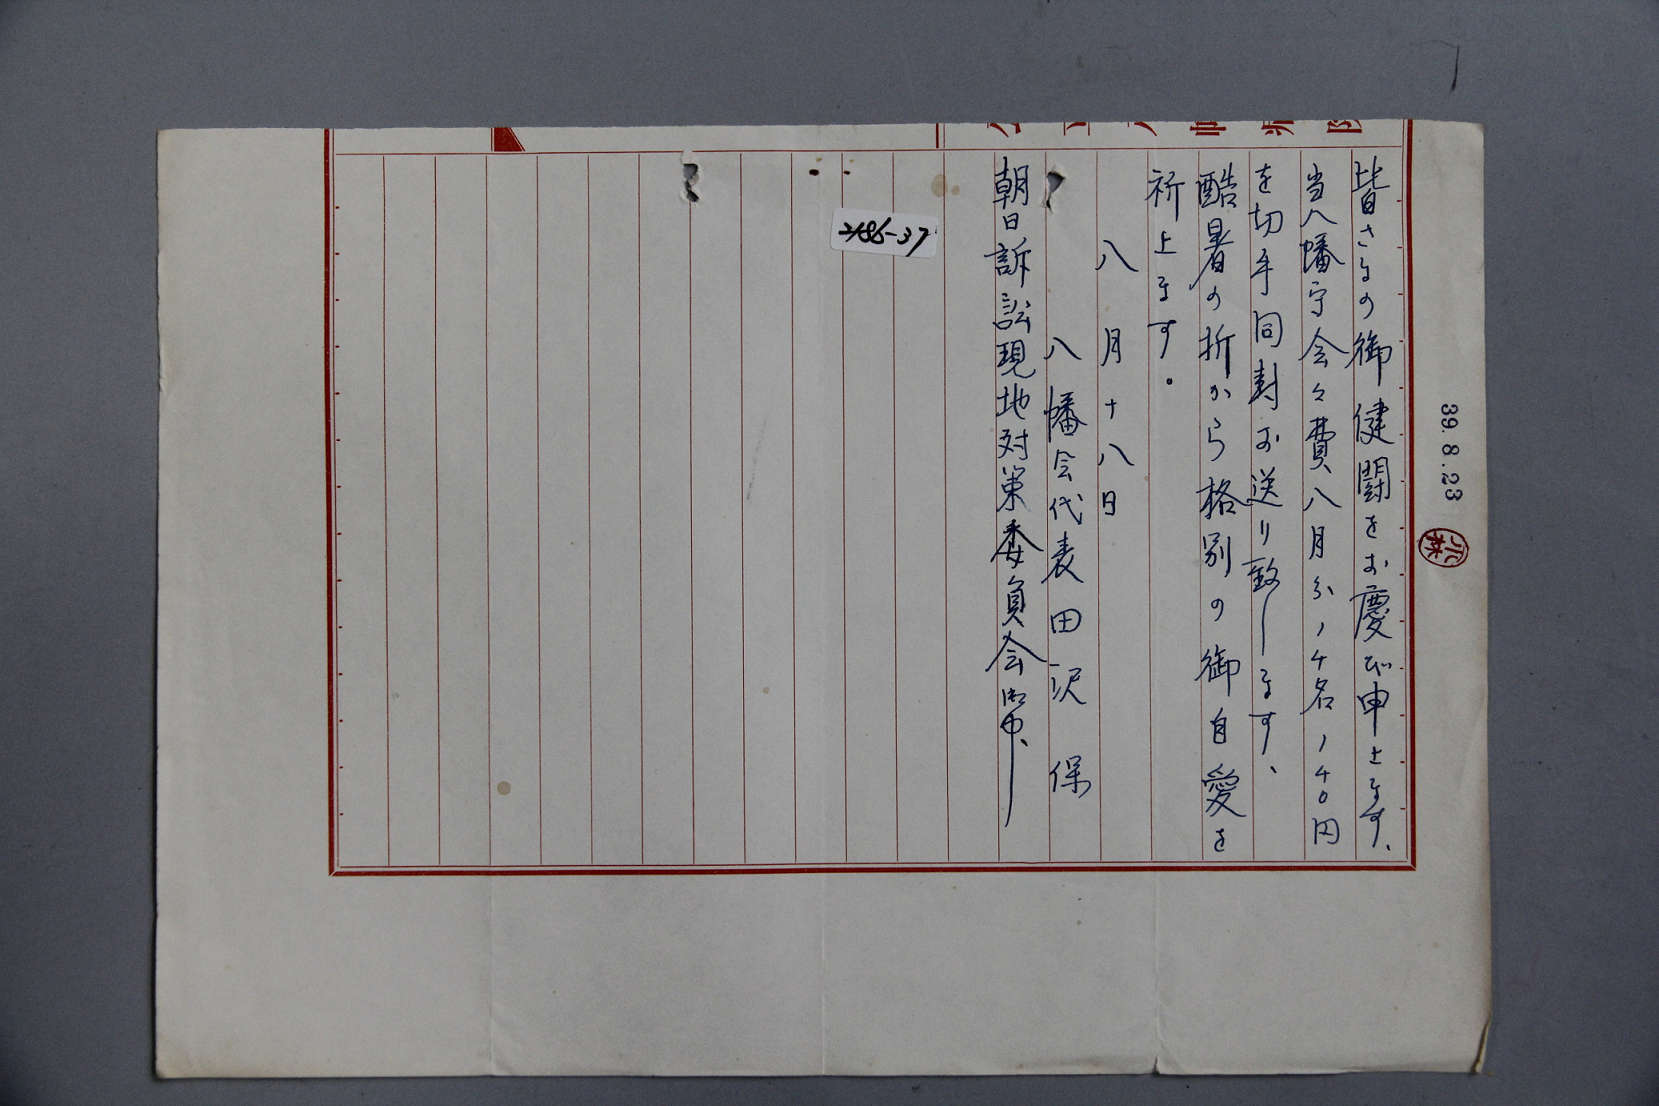 皆さまの御健闘をお慶び申上ます、
当八幡守会々費八月分、14名、140円
を切手同封お送り致します、
酷暑の折から格別の御自愛を
祈上ます。
八月十八日
八幡会代表田沢 保
朝日訴訟現地対策委員会御中、
39.8.23
小林
2186-37